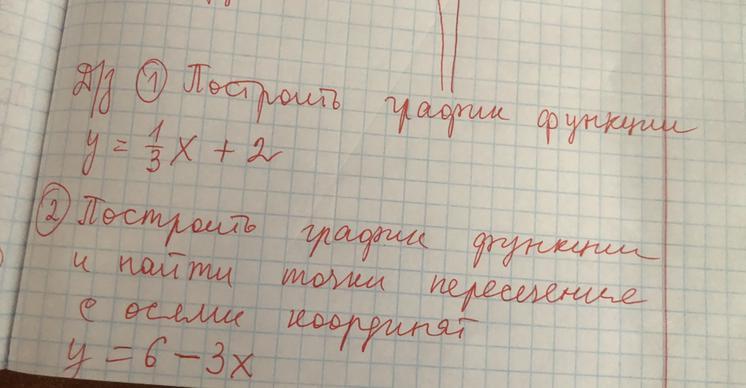 Д/з ① Построить график функции
y = 1/3 x + 2
② Построить график функции
и найти точки пересечения
с осями координат
y = 6 - 3x